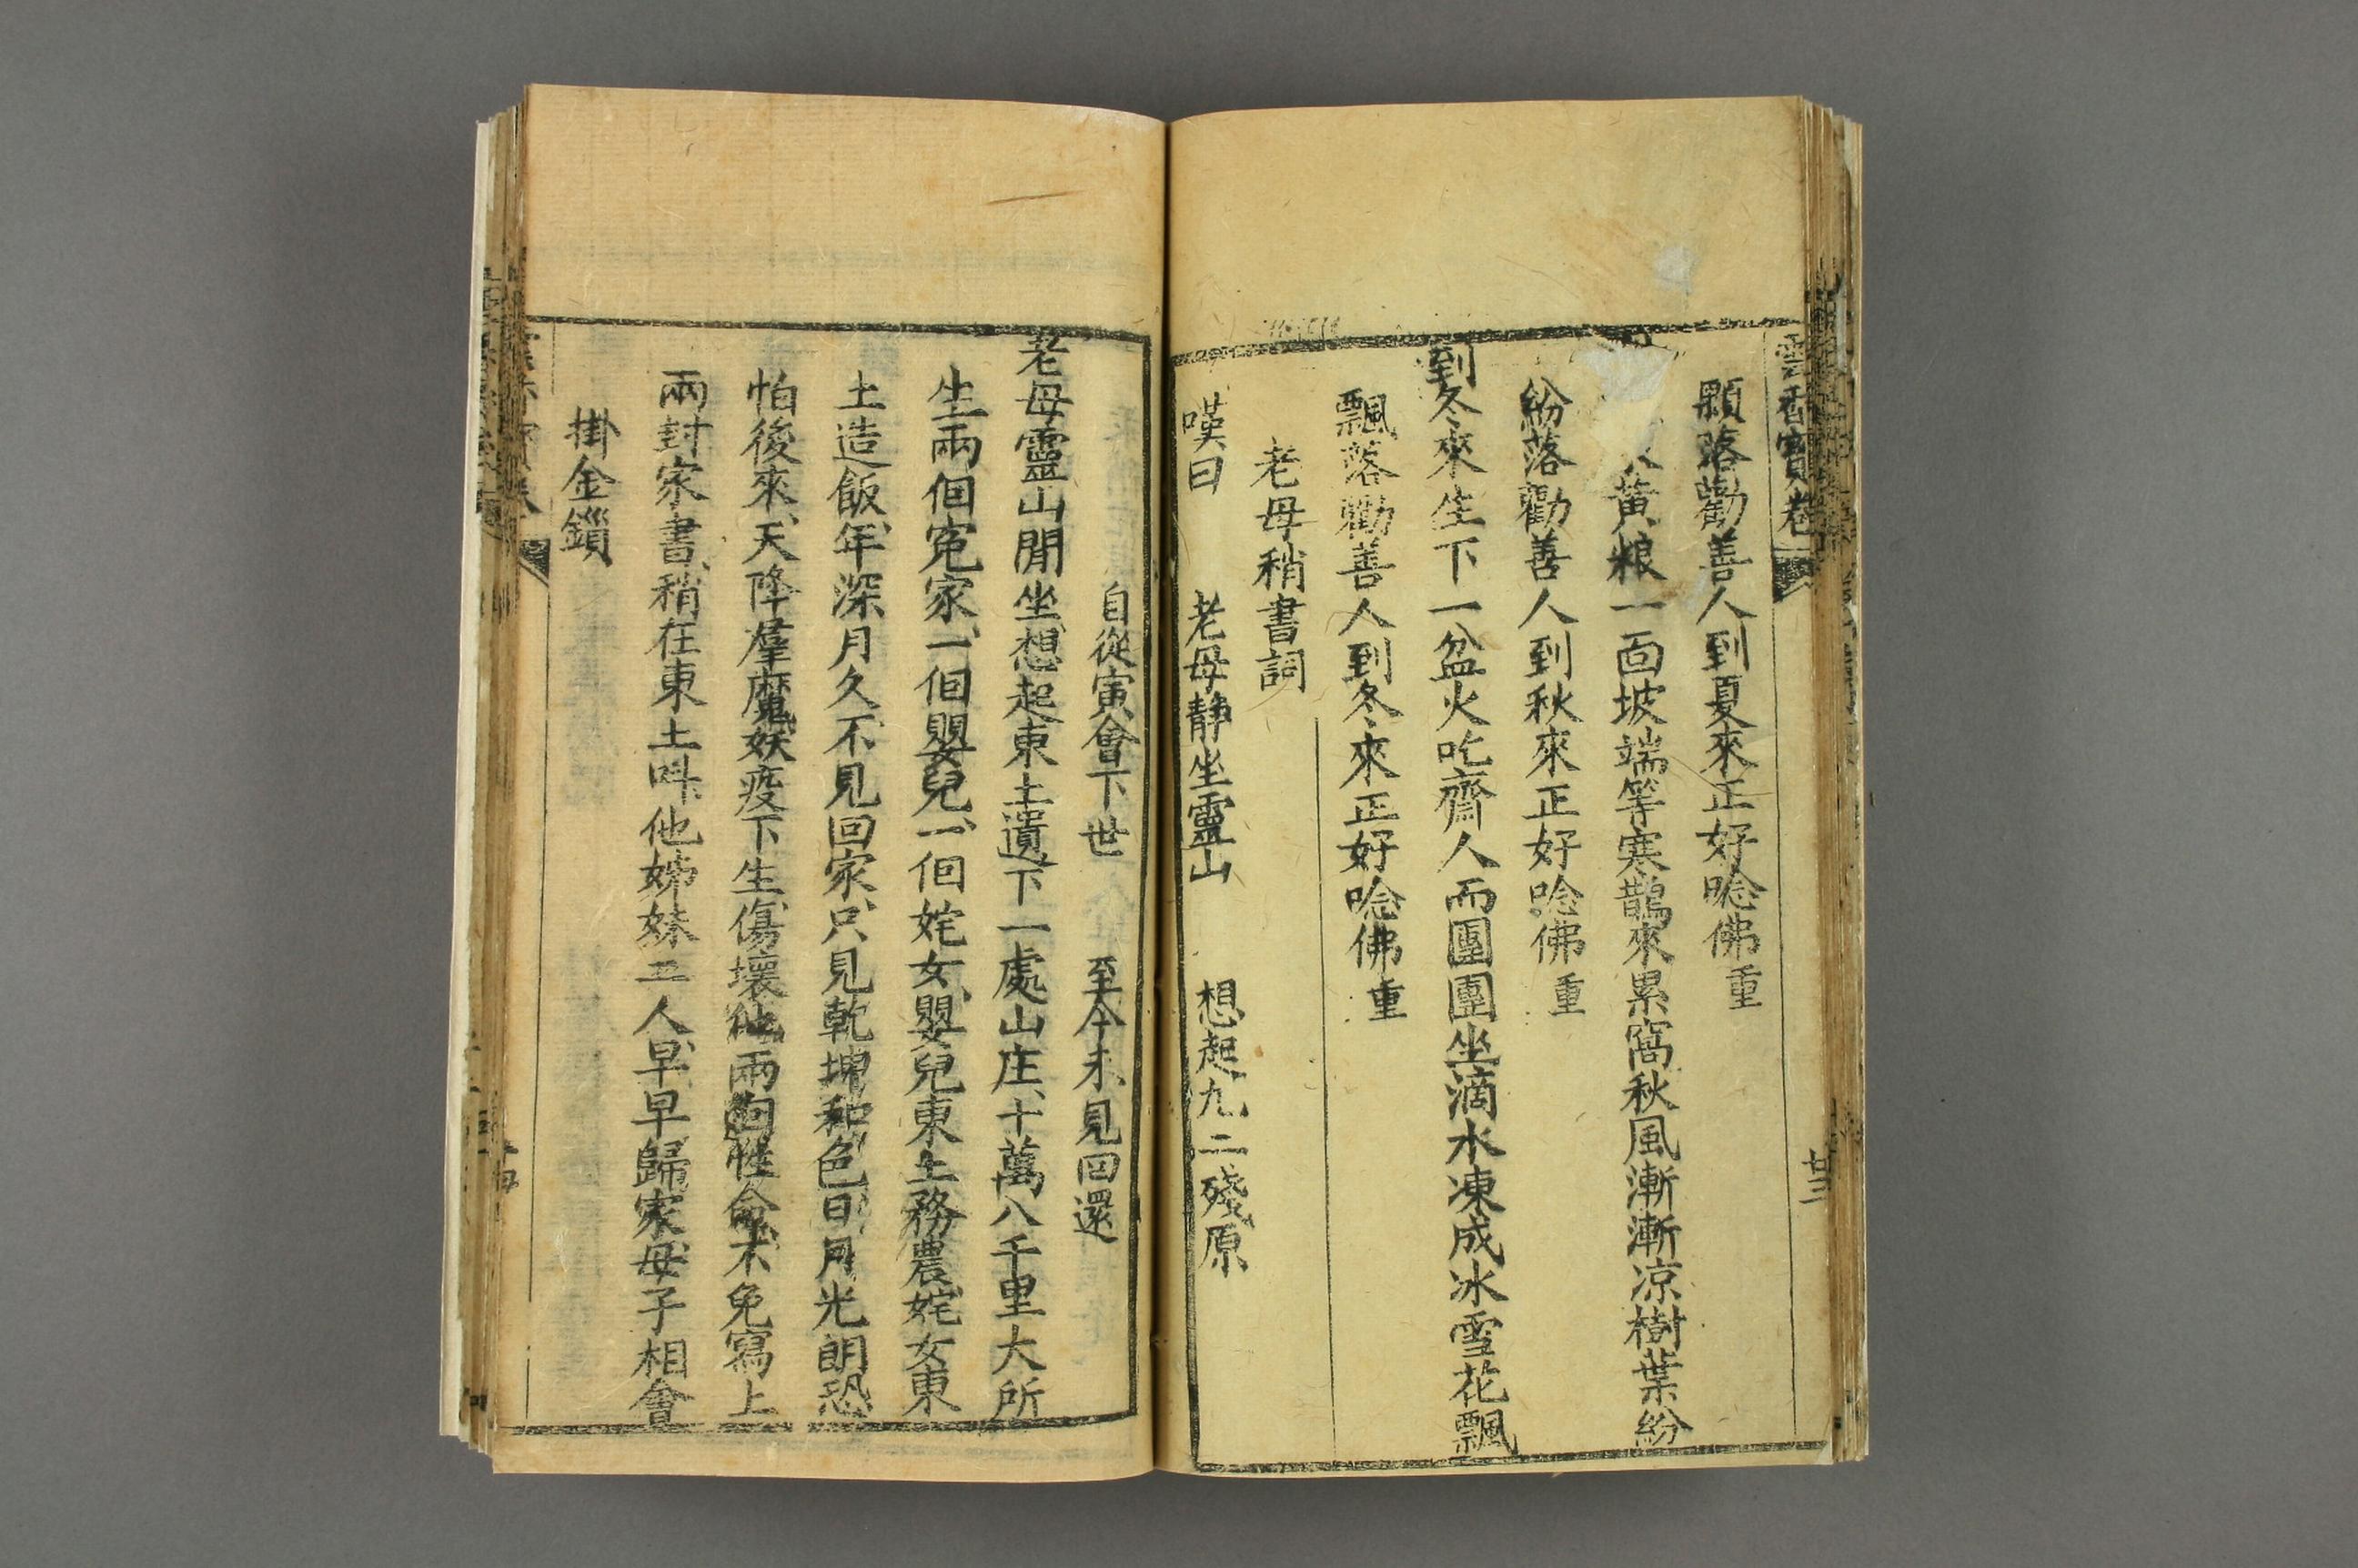 雲香寶卷
廿三
顆落勸善人到夏來正好唸佛重
黃粮一面坡端等寒鵲來累窩秋風漸漸凉樹葉紛
紛落勸善人到秋來正好唸佛重
到冬來生下一盆火吃齋人而團團坐滴水凍成冰雪花飄
飄落勸善人到冬來正好唸佛重
老母稍書詞
嘆曰 老母静坐靈山 想起九二殘原
自從寅會下世 至今未見回還
老母靈山閒坐想起東土遺下一處山庄十萬八千里大所
生兩個寃家一個嬰兒一個姹女嬰兒東土務農姹女東
土造飯年深月久不見回家只見乾坤和色日月光朗恐
怕後來天降羣魔妖疫下生傷壞他兩個性命不免寫上
兩封家書稍在東土呌他姊妹二人早早歸家母子相會
掛金鎖